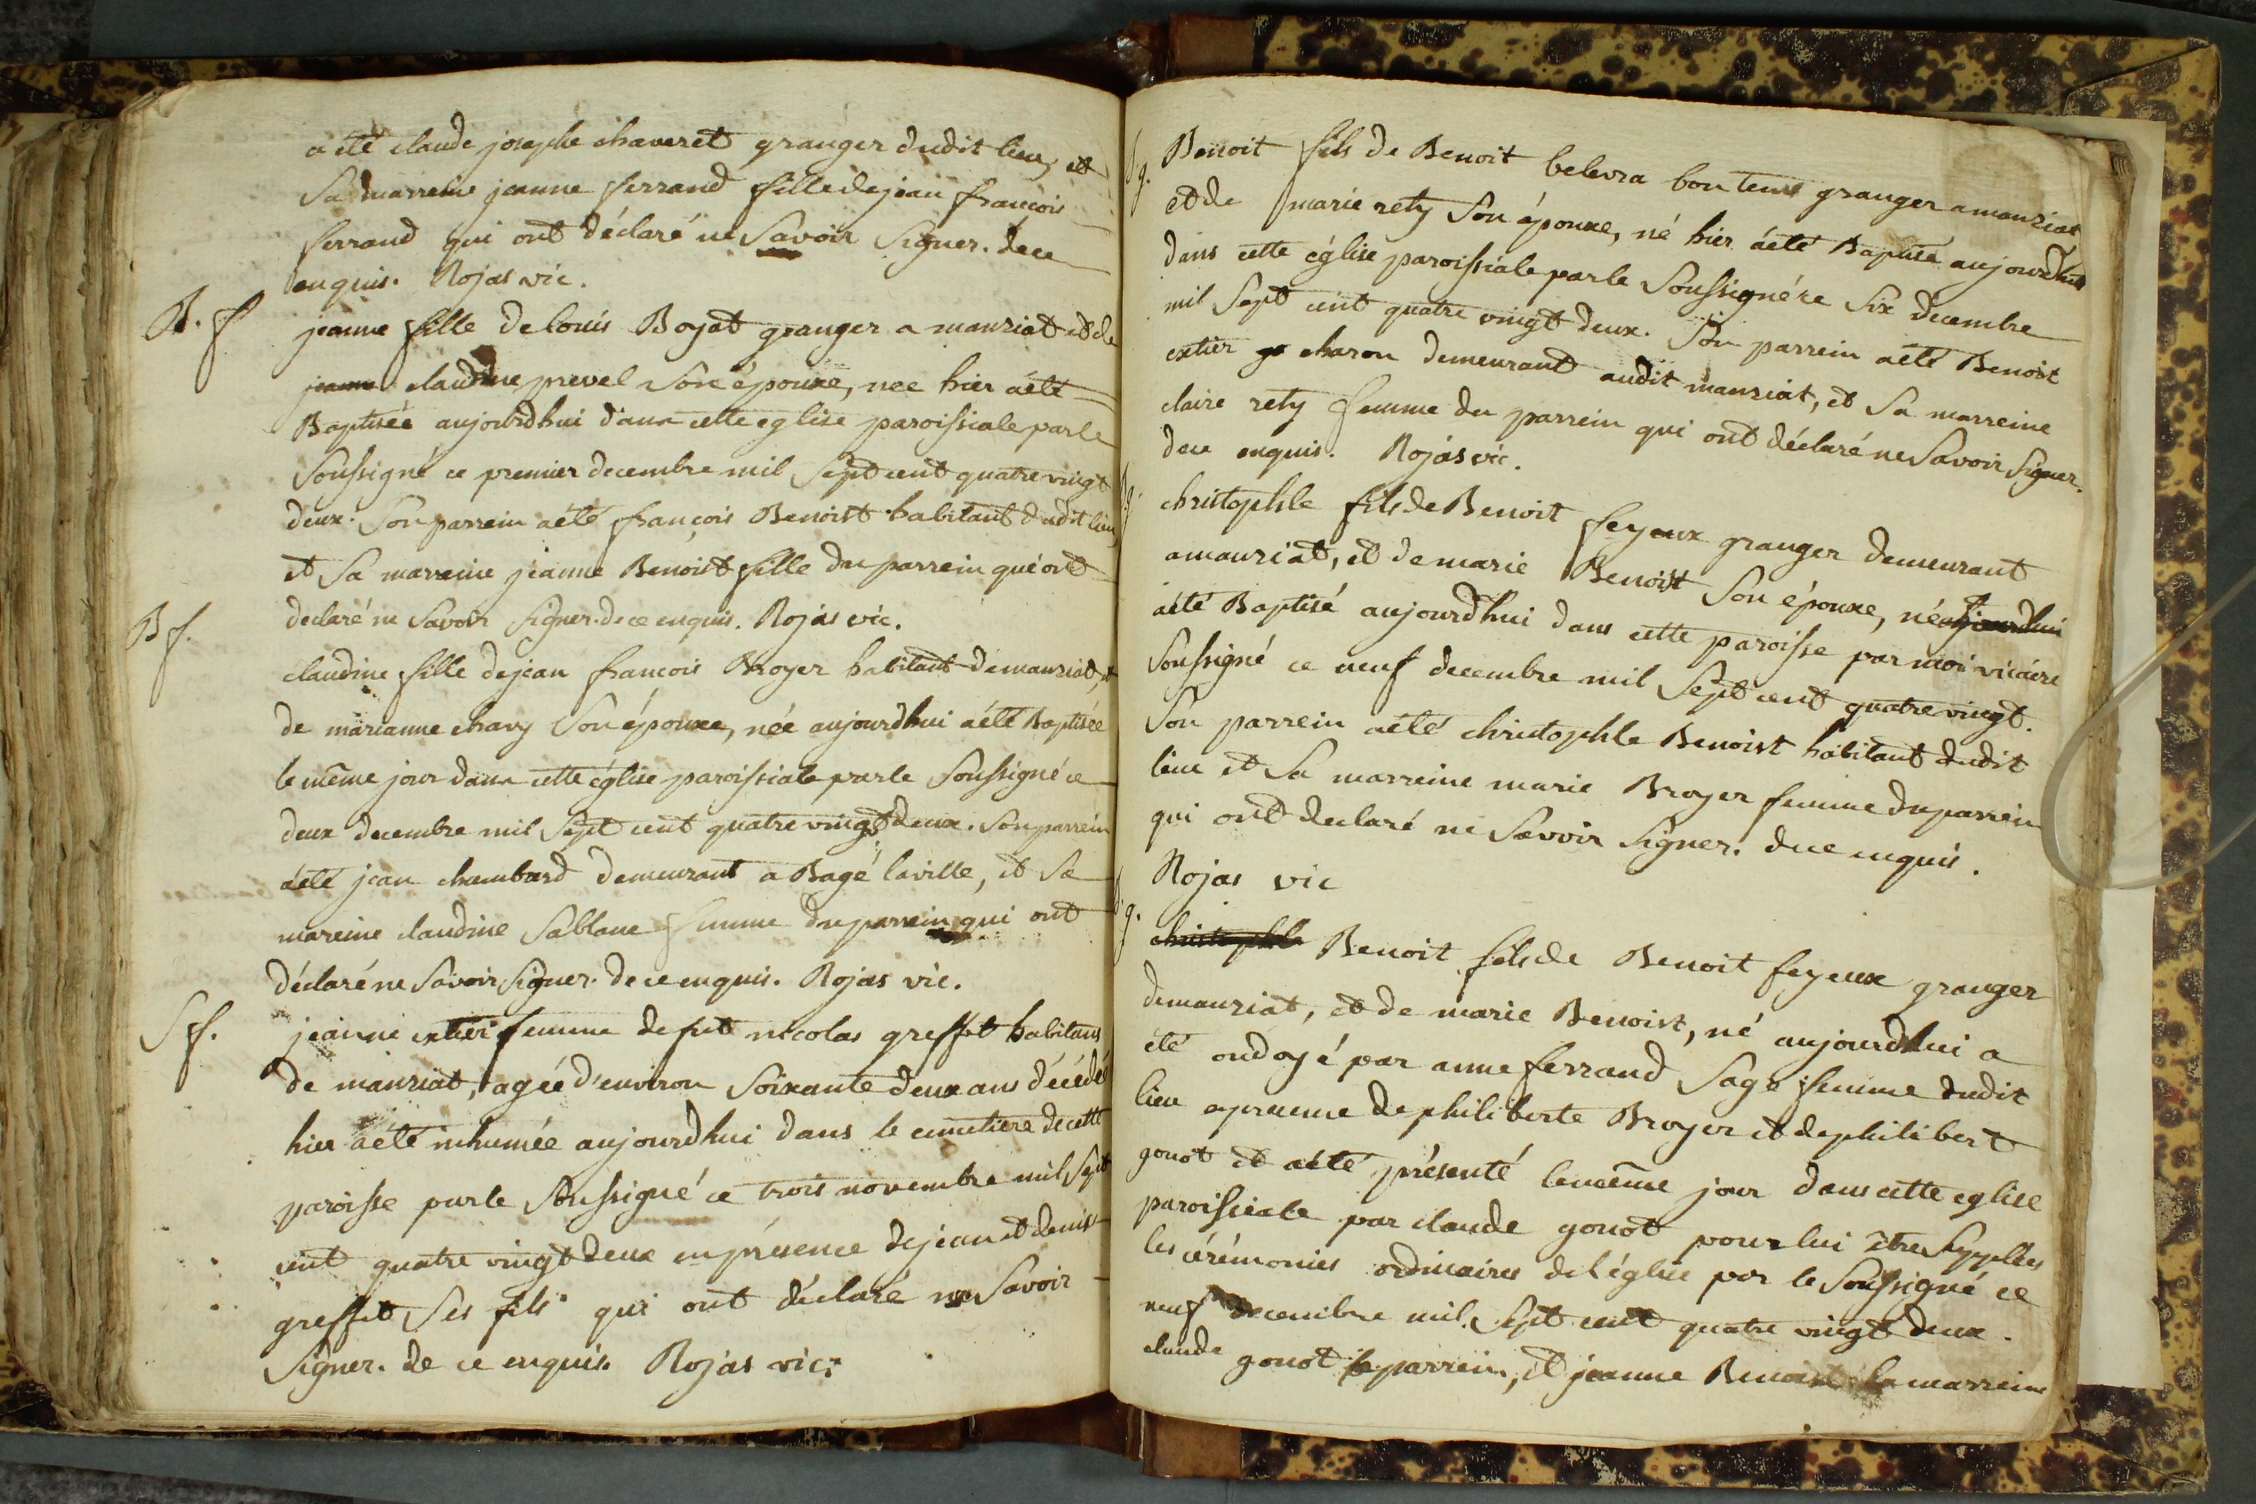 a été claude josephe chaveret granger dudit lieu, et
Sa marreine jeanne ferrand fille de jean francois
ferrand qui ont déclaré ne Savoir Signer. de ce
enquis. Rojas vic.
B. f jeanne fille de louis Bojat granger a manziat et de
jeanne claudine prevel Son épouxe, nee hier a été
Baptisée aujourdhui dans cette eglise paroissiale par le
Soussigné ce premier decembre mil Sept cent quatre vingt
deux. Son parrein a été françois Benoist habitant dudit lieu
et Sa marreine jeanne Benoist fille du parrein qui ont
declaré ne Savoir Signer. de ce enquis. Rojas vic.
B f. claudine fille de jean francois Broyer habitant de manziat, et
de marianne chavy Son épouxe, née aujourdhui a été Baptisée
le même jour dans cette église paroissiale par le Soussigné ce
deux decembre mil Sept cent quatre vingt deux. Son parrein
a été jean chambard demeurant a Bagé laville, et Sa
mareine claudine Sablane femme du parrein qui ont
déclaré ne Savoir Signer. de ce enquis. Rojas vic.
S f. jeanne extier femme de fut nicolas greffet habitans
de manziat, agée d'environ Soixante deux ans décédée
hier a été inhumée aujourdhui dans le cimetiere de cette
paroisse par le Soussigné ce trois novembre mil Sept
cent quatre vingt deux en présence de jean et denis
greffet Ses fils qui ont déclaré ne Savoir
Signer. de ce enquis. Rojas vic.
g. Benoit fils de Benoit belevra bontems granger a manziat
et de marie rety Son épouxe, né hier a été Baptisé aujourdhui
dans cette église paroissiale par le Soussigné ce Six decembre
mil Sept cent quatre vingt deux. Son parrein a été Benoist
extier charon demeurant audit manziat, et Sa marreine
claire rety femme du parrein qui ont déclaré ne Savoir Signer.
de ce enquis. Rojas vic.
g. christophle fils de Benoit feyeux granger demeurant
a manziat, et de marie Benoist Son épouxe, né aujourdhui
a été Baptisé aujourdhui dans cette paroisse par moi vicaire
Soussigné ce neuf decembre mil Sept cent quatre vingt.
Son parrein a été christophle Benoist habitant dudit
lieu et Sa marreine marie Broyer femme du parrein
qui ont declaré ne Savoir Signer. de ce enquis.
Rojas vic
g. christophle Benoit fils de Benoit feyeux granger
de manziat, et de marie Benoist, né aujourdhui a
été ondoyé par anne ferrand Sage femme dudit
lieu a preuve de philiberte Broyer et de philibert
gonot et a été présenté le même jour dans cette eglise
paroissiale par claude gonot pour lui être Suppléés
les cérémonies ordinaires de l'église par le Soussigné ce
neuf decembre mil Sept cent quatre vingt deux.
claude gonot le parrein, et jeanne Benoist la marreine